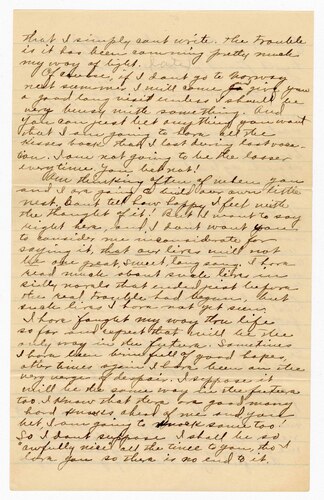 that I simply cant write. The trouble
is it has been comming pretty much
my way of light. lately
Of course, if I dont go to Norway
next summer I will come give you
a good long visit unless I should be
very busy with something. And
you can just bet anything you want
that I am going to have all the
kisses back that I lost during last vaca-
tion. I am not going to be the loser
every time, you bet not!
Am thinking often of when you
and I are going to build our own little
nest, cant tell how happy I feel with
the thought of it! But I want to say
right here, and I dont want you
to consider me inconsiderate for
saying it, that our lives will not
be one sweet long song. I have
read much about such lives in
silly novels that ended just before
the real trouble had begun, but
such lives I have not yet seen.
I have fought my way thru life
so far and expect that will be the
only way in the future. Sometimes
I have been brim full of good hopes,
other times again I have been on the
very verge of despair. I suppose it
will be the same way in the future
too. I know that there is a good many
hard knocks ahead of me and you
bet I am going to knock some too!
So I dont suppose I shall be so
awfully nice all the time to you, tho I
love you so there is no end to it.